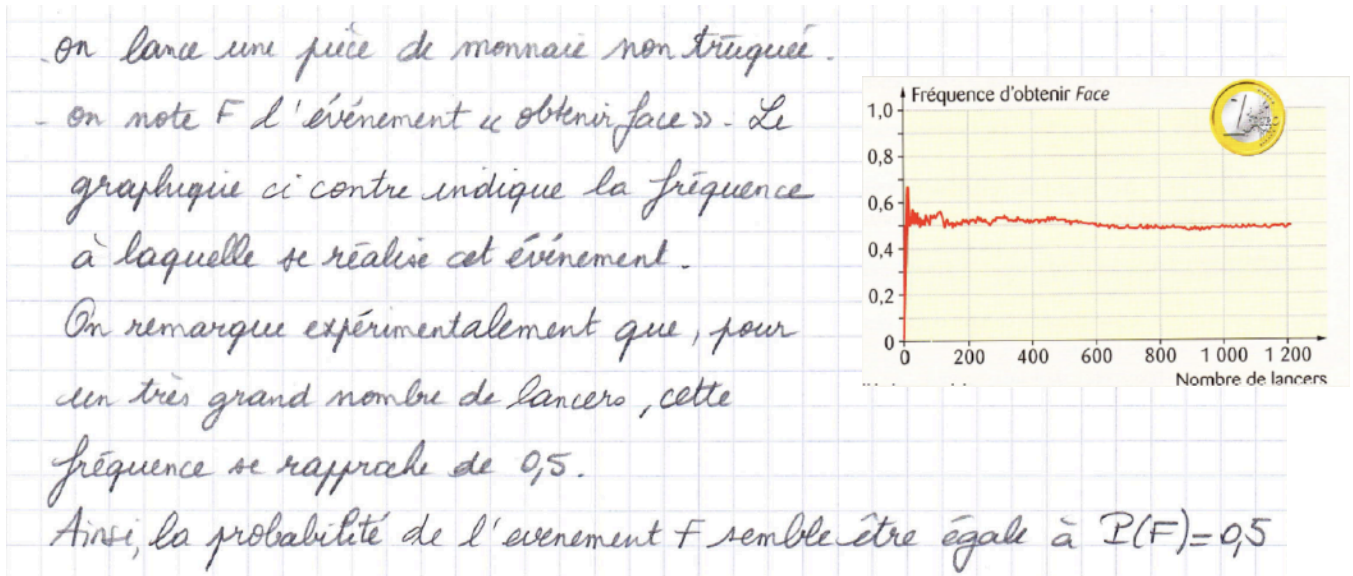 - on lance une pièce de monnaie non truquée.
- on note F l'événement « obtenir face ». Le
graphique ci contre indique la fréquence
à laquelle se réalise cet événement.
On remarque expérimentalement que, pour
un très grand nombre de lancers, cette
fréquence se rapproche de 0,5.
Ainsi, la probabilité de l'evenement F semble être égale à P(F)=0,5
Fréquence d'obtenir Face
1,0
0,8
0,6
0,4
0,2
0
0 200 400 600 800 1 000 1 200
Nombre de lancers